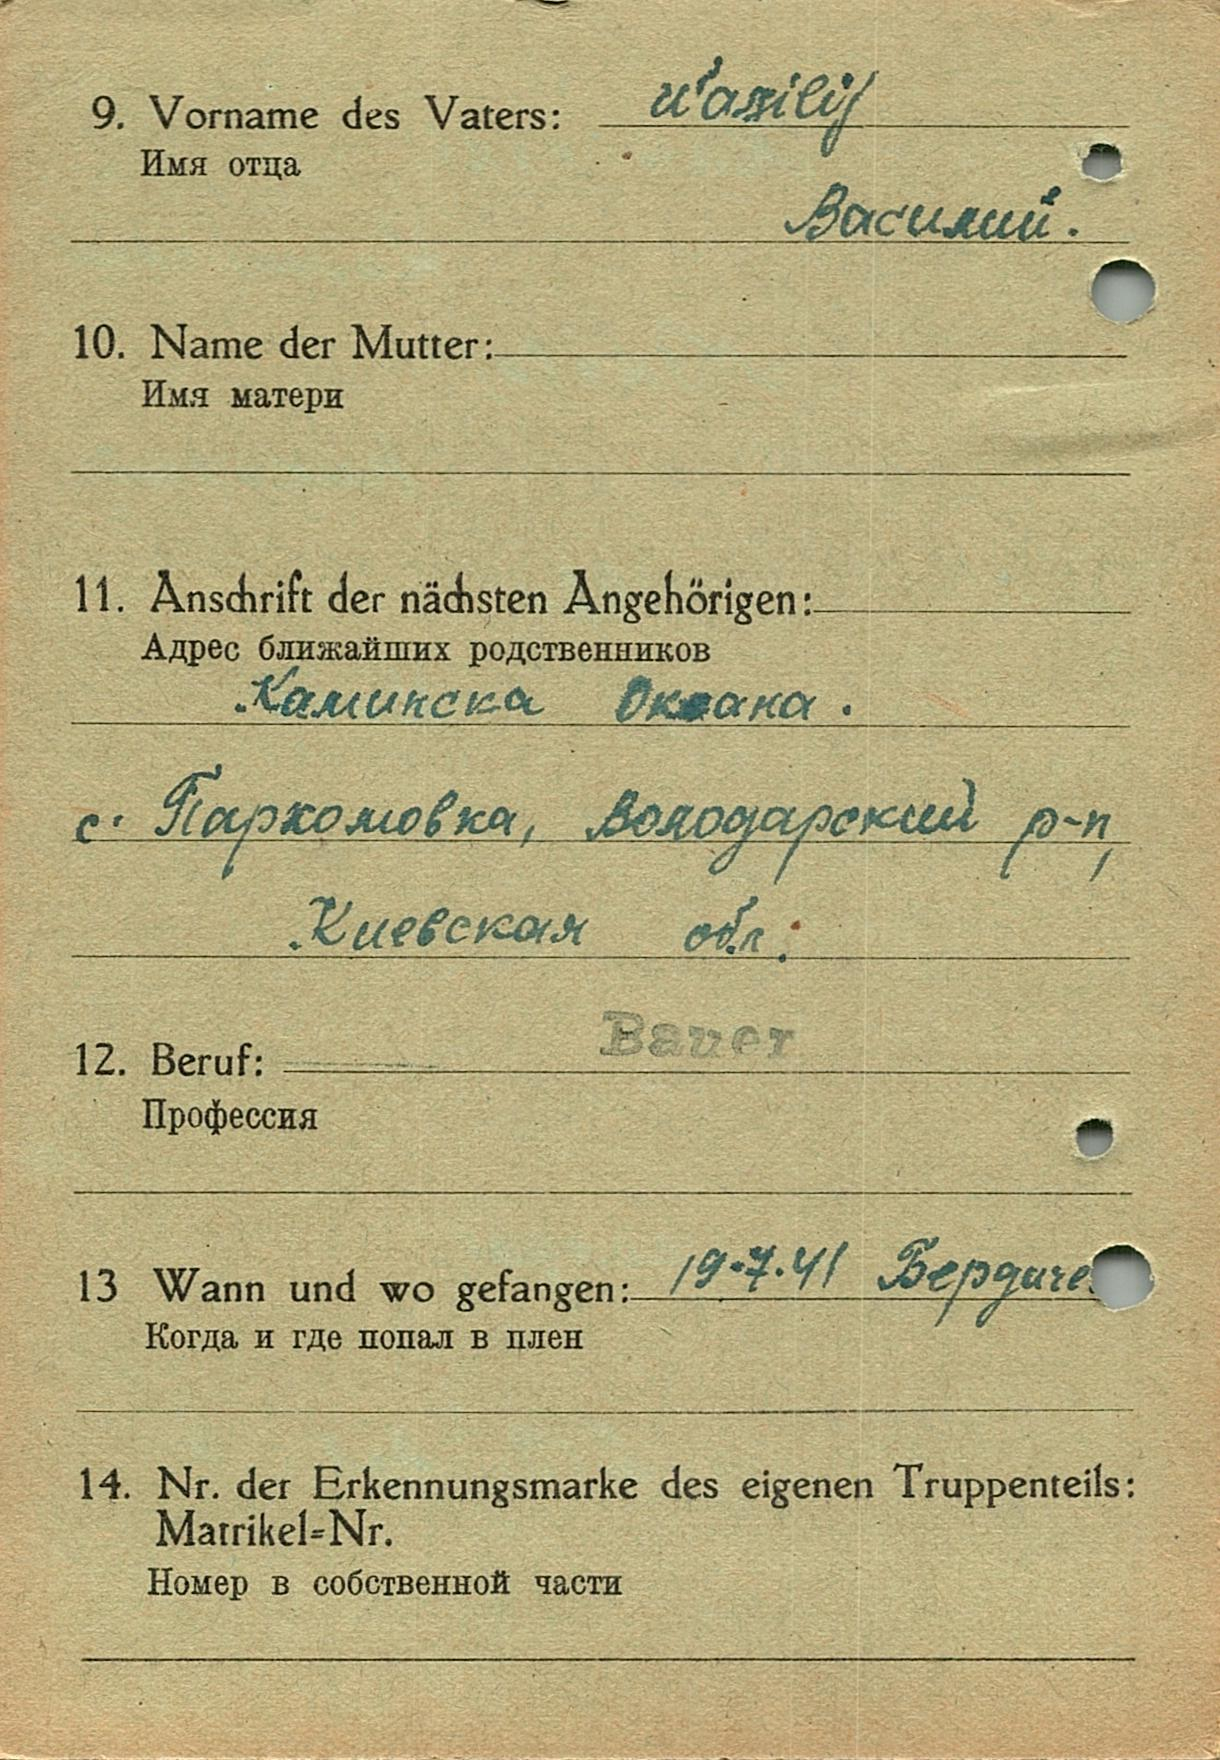 9. Vorname des Vaters: Wassilij
Имя отца
Василий.
10. Name der Mutter:
Имя матери
11. Anschrift der nächsten Angehörigen:
Адрес ближайших родственников
Каминска Оксана.
с. Пархомовка, Володарский р-н,
Киевская обл.
12. Beruf: Bauer
Профессия
13 Wann und wo gefangen: 19.7.41 Бердиче
Когда и где попал в плен
14. Nr. der Erkennungsmarke des eigenen Truppenteils:
Matrikel=Nr.
Номер в собственной части